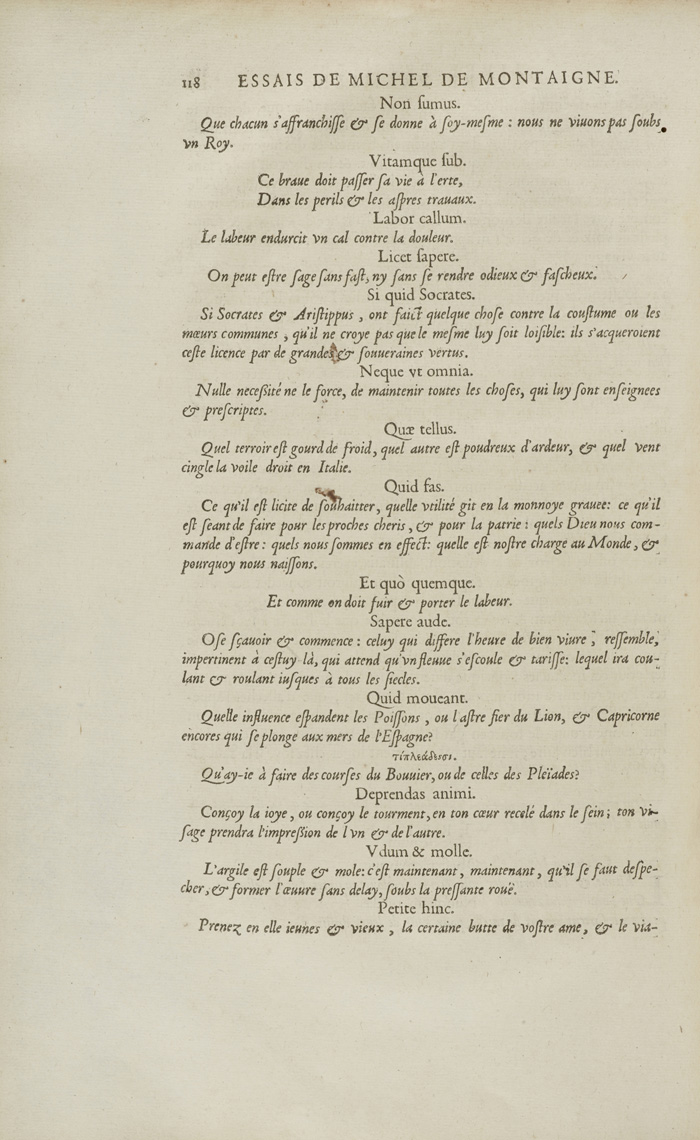 118 ESSAIS DE MICHEL DE MONTAIGNE.
Non ſumus.
Que chacun s'affranchiſſe & ſe donne à ſoy-meſme : nous ne viuons pas ſoubs
vn Roy.
Vitamque ſub.
Ce braue doit paſſer ſa vie à l'erte,
Dans les perils & les aſpres trauaux.
Labor callum.
Le labeur endurcit vn cal contre la douleur.
Licet ſapere.
On peut eſtre ſage ſans faſt, ny ſans ſe rendre odieux & faſcheux.
Si quid Socrates.
Si Socrates & Ariſtippus , ont faict quelque choſe contre la couſtume ou les
mœurs communes , qu'il ne croye pas que le meſme luy ſoit loiſible: ils s'acqueroient
ceſte licence par de grandes & ſouueraines vertus.
Neque vt omnia.
Nulle neceſſité ne le force, de maintenir toutes les choſes, qui luy ſont enſeignees
& preſcriptes.
Quæ tellus.
Quel terroir eſt gourd de froid, quel autre eſt poudreux d'ardeur, & quel vent
cingle la voile droit en Italie.
Quid fas.
Ce qu'il eſt licite de ſouhaitter, quelle vtilité git en la monnoye grauee: ce qu'il
eſt ſeant de faire pour les proches cheris , & pour la patrie : quels Dieu nous com-
mande d'eſtre : quels nous ſommes en effect: quelle eſt noſtre charge au Monde , &
pourquoy nous naiſſons.
Et quò quemque.
Et comme on doit fuir & porter le labeur.
Sapere aude.
Oſe ſçauoir & commence : celuy qui differe l'heure de bien viure , reſſemble,
impertinent à ceſtuy-là, qui attend qu'vn fleuue s'eſcoule & tariſſe: lequel ira cou-
lant & roulant iuſques à tous les ſiecles.
Quid moueant.
Quelle influence eſpandent les Poiſſons , ou l'aſtre fier du Lion, & Capricorne
encores qui ſe plonge aux mers de l'Eſpagne?
τίπλεάδεσσι.
Qu'ay-ie à faire des courſes du Bouuier, ou de celles des Pleïades?
Deprendas animi.
Conçoy la ioye, ou conçoy le tourment, en ton cœur recelé dans le ſein; ton vi-
ſage prendra l'impreſſion de l'vn & de l'autre.
Vdum & molle.
L'argile eſt ſouple & mole: c'eſt maintenant, maintenant, qu'il ſe faut deſpe-
cher, & former l'œuure ſans delay, ſoubs la preſſante rouë.
Petite hinc.
Prenez en elle ieunes & vieux , la certaine butte de voſtre ame, & le via-